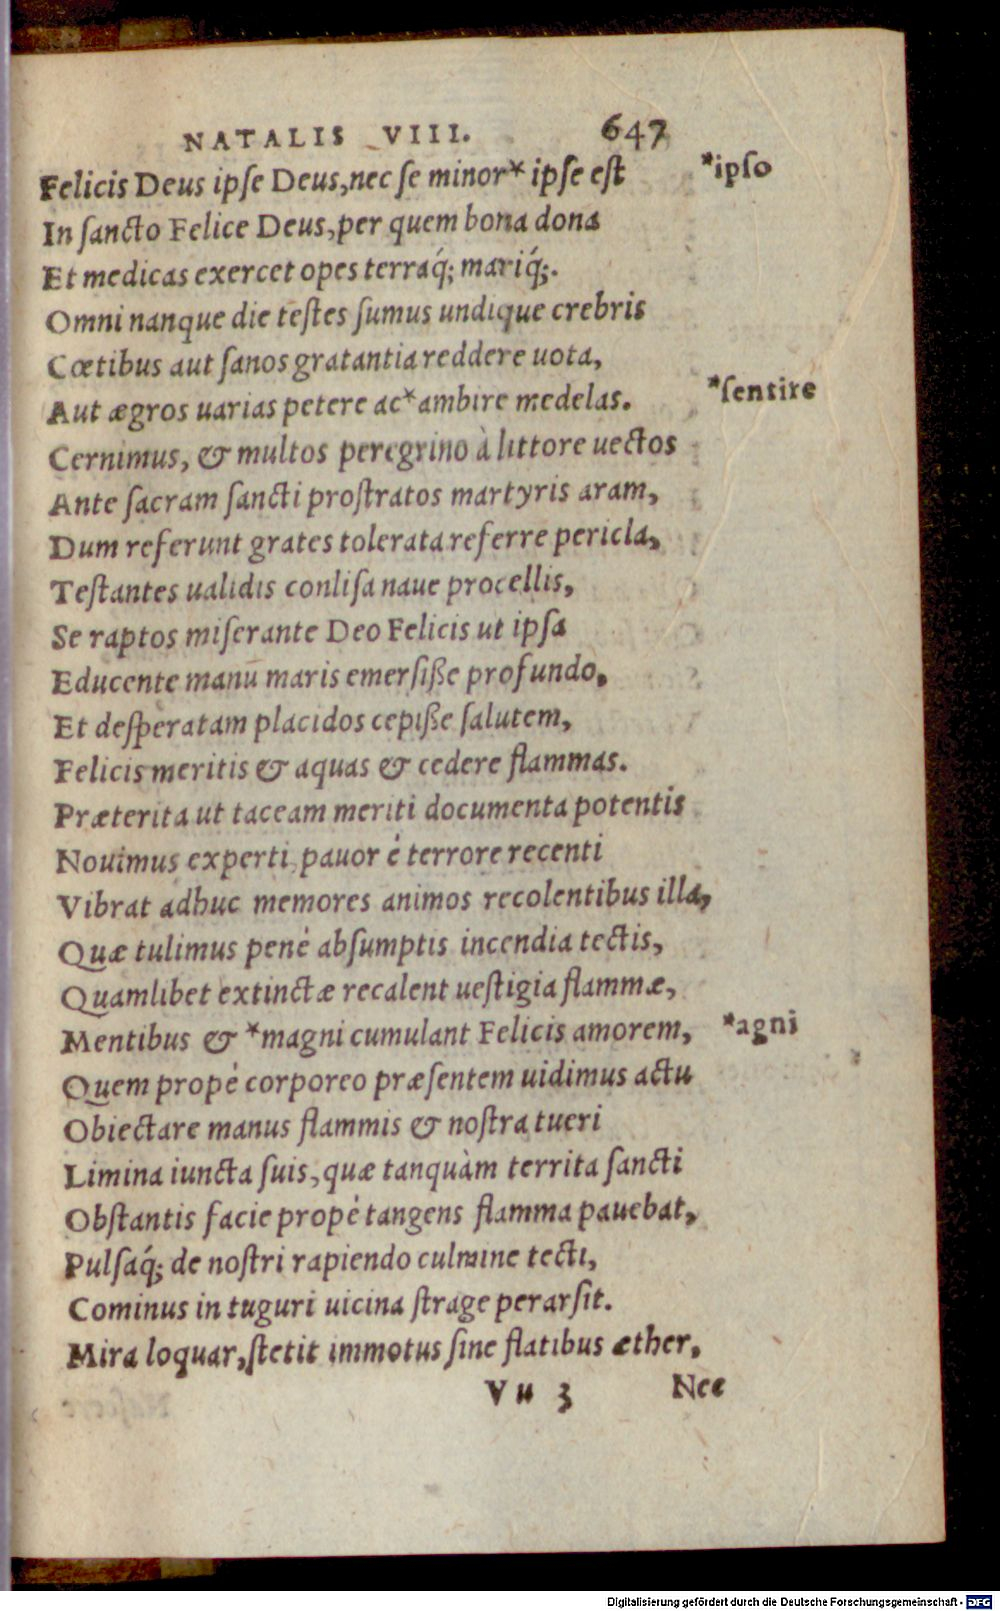 NATALIS VIII. 647
Felicis Deus ipſe Deus, nec ſe minor* ipſe eſt *ipſo
In ſancto Felice Deus, per quem bona dona
Et medicas exercet opes terraq́; mariq́;.
Omni nanque die teſtes ſumus undique crebris
Cœtibus aut ſanos gratantia reddere uota,
Aut ægros uarias petere ac* ambire medelas. *ſentire
Cernimus, & multos peregrino à littore uectos
Ante ſacram ſancti proſtratos martyris aram,
Dum referunt grates tolerata referre pericla,
Teſtantes ualidis conliſa naue procellis,
Se raptos miſerante Deo Felicis ut ipſa
Educente manu maris emerſiße profundo,
Et deſperatam placidos cepiße ſalutem,
Felicis meritis & aquas & cedere flammas.
Præterita ut taceam meriti documenta potentis
Nouimus experti, pauor é terrore recenti
Vibrat adhuc memores animos recolentibus illa,
Quæ tulimus pené abſumptis incendia tectis,
Quamlibet extinctæ recalent ueſtigia flammæ,
Mentibus & *magni cumulant Felicis amorem, *agni
Quem propé corporeo præſentem uidimus actu
Obiectare manus flammis & noſtra tueri
Limina iuncta ſuis, quæ tanquàm territa ſancti
Obſtantis facie propé tangens flamma pauebat,
Pulſaq́; de noſtri rapiendo culmine tecti,
Cominus in tuguri uicina ſtrage perarſit.
Mira loquar, ſtetit immotus ſine flatibus æther,
Vu 3 Nec
Digitalisierung gefördert durch die Deutsche Forschungsgemeinschaft - DFG